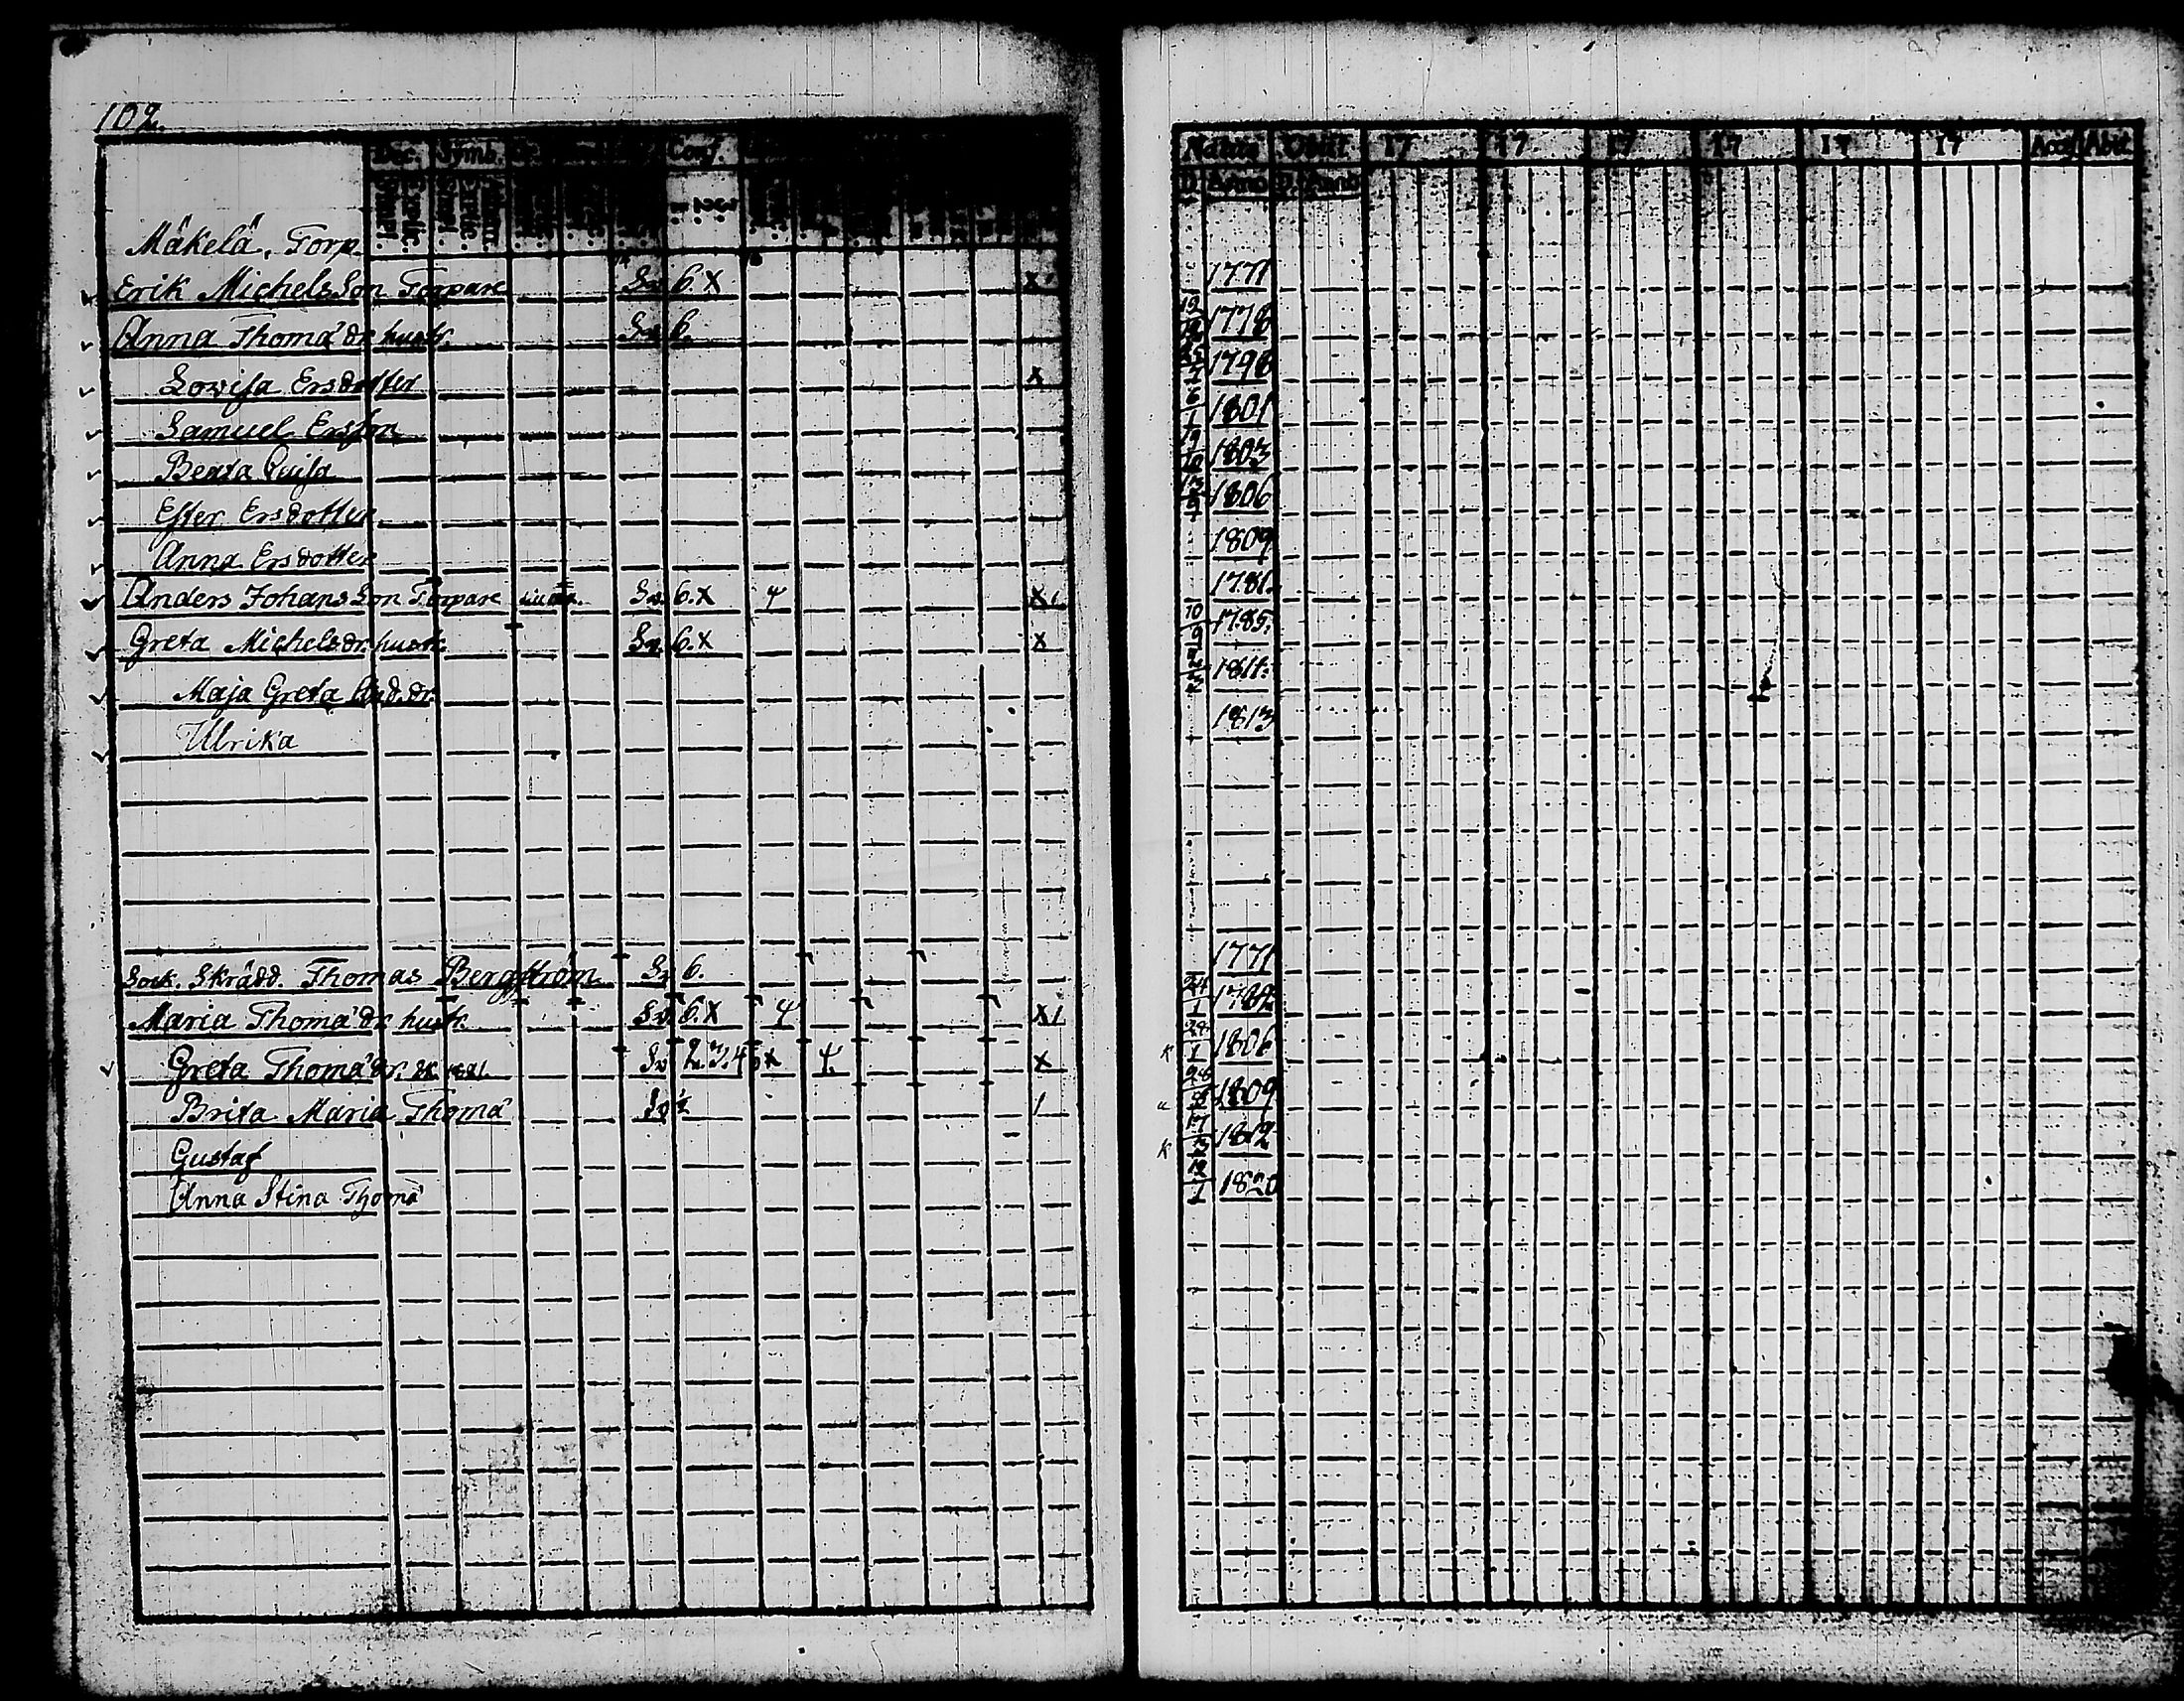 102.
Dec. Symb. Conf.
Mäkelä. Torp.
Erik Michels Son Torpare Sv 6. x x
Anna Thoma' dr hustr. Sv 6.
Lovisa Ersdotter x
Samuel Ersson
Beata Luisa
Ester Ersdotter
Anna Ersdotter
Anders Johans Son Torpare Sv. 6. x 4 x
Greta Michels dr. hustr. Sv. 6. x x
Maja Greta And. dr.
Ulrika
Sock. Skrädd. Thomas Bergström Sv 6.
Maria Thoma' dr. hustr. Sv. 6. x 4 x 1
Greta Thoma' dr. Sv 2. 3. 4 5 x 4. x
Brita Maria Thoma' Sv 1
Gustaf
Anna Stina Thoma'
Natus Obiit 17 17 17 17 17 17 Acces. Abit.
D. Anno D. Anno
1771
1778
1798
1801
1803
1806
1809
1781.
1785.
1811.
1813
1771
24/1 1782
1 1806
1809
1812
12/1 1820